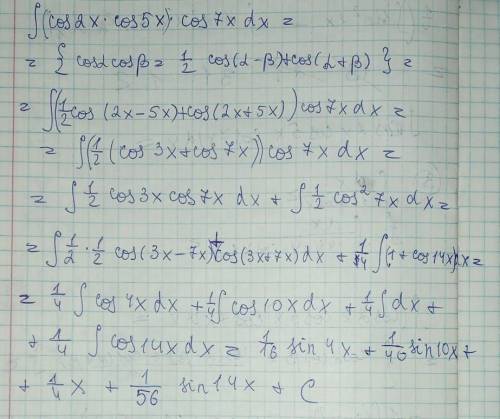 ∫(cos2x · cos5x) · cos 7x dx =
= { cosα cosβ = 1/2 cos(α-β)+cos(α+β) } =
= ∫(1/2 cos (2x-5x)+cos(2x+5x)) cos7x dx =
= ∫(1/2 (cos 3x+cos 7x)) cos 7x dx =
= ∫ 1/2 cos3x cos7x dx + ∫ 1/2 cos² 7x dx =
= ∫ 1/2 · 1/2 cos(3x-7x)+cos(3x+7x) dx + 1/4 ∫(1+cos14x)dx =
= 1/4 ∫ cos 4x dx + 1/4 ∫ cos 10x dx + 1/4 ∫ dx +
+ 1/4 ∫ cos14x dx = 1/16 sin 4x + 1/40 sin10x +
+ 1/4 x + 1/56 sin 14x + C